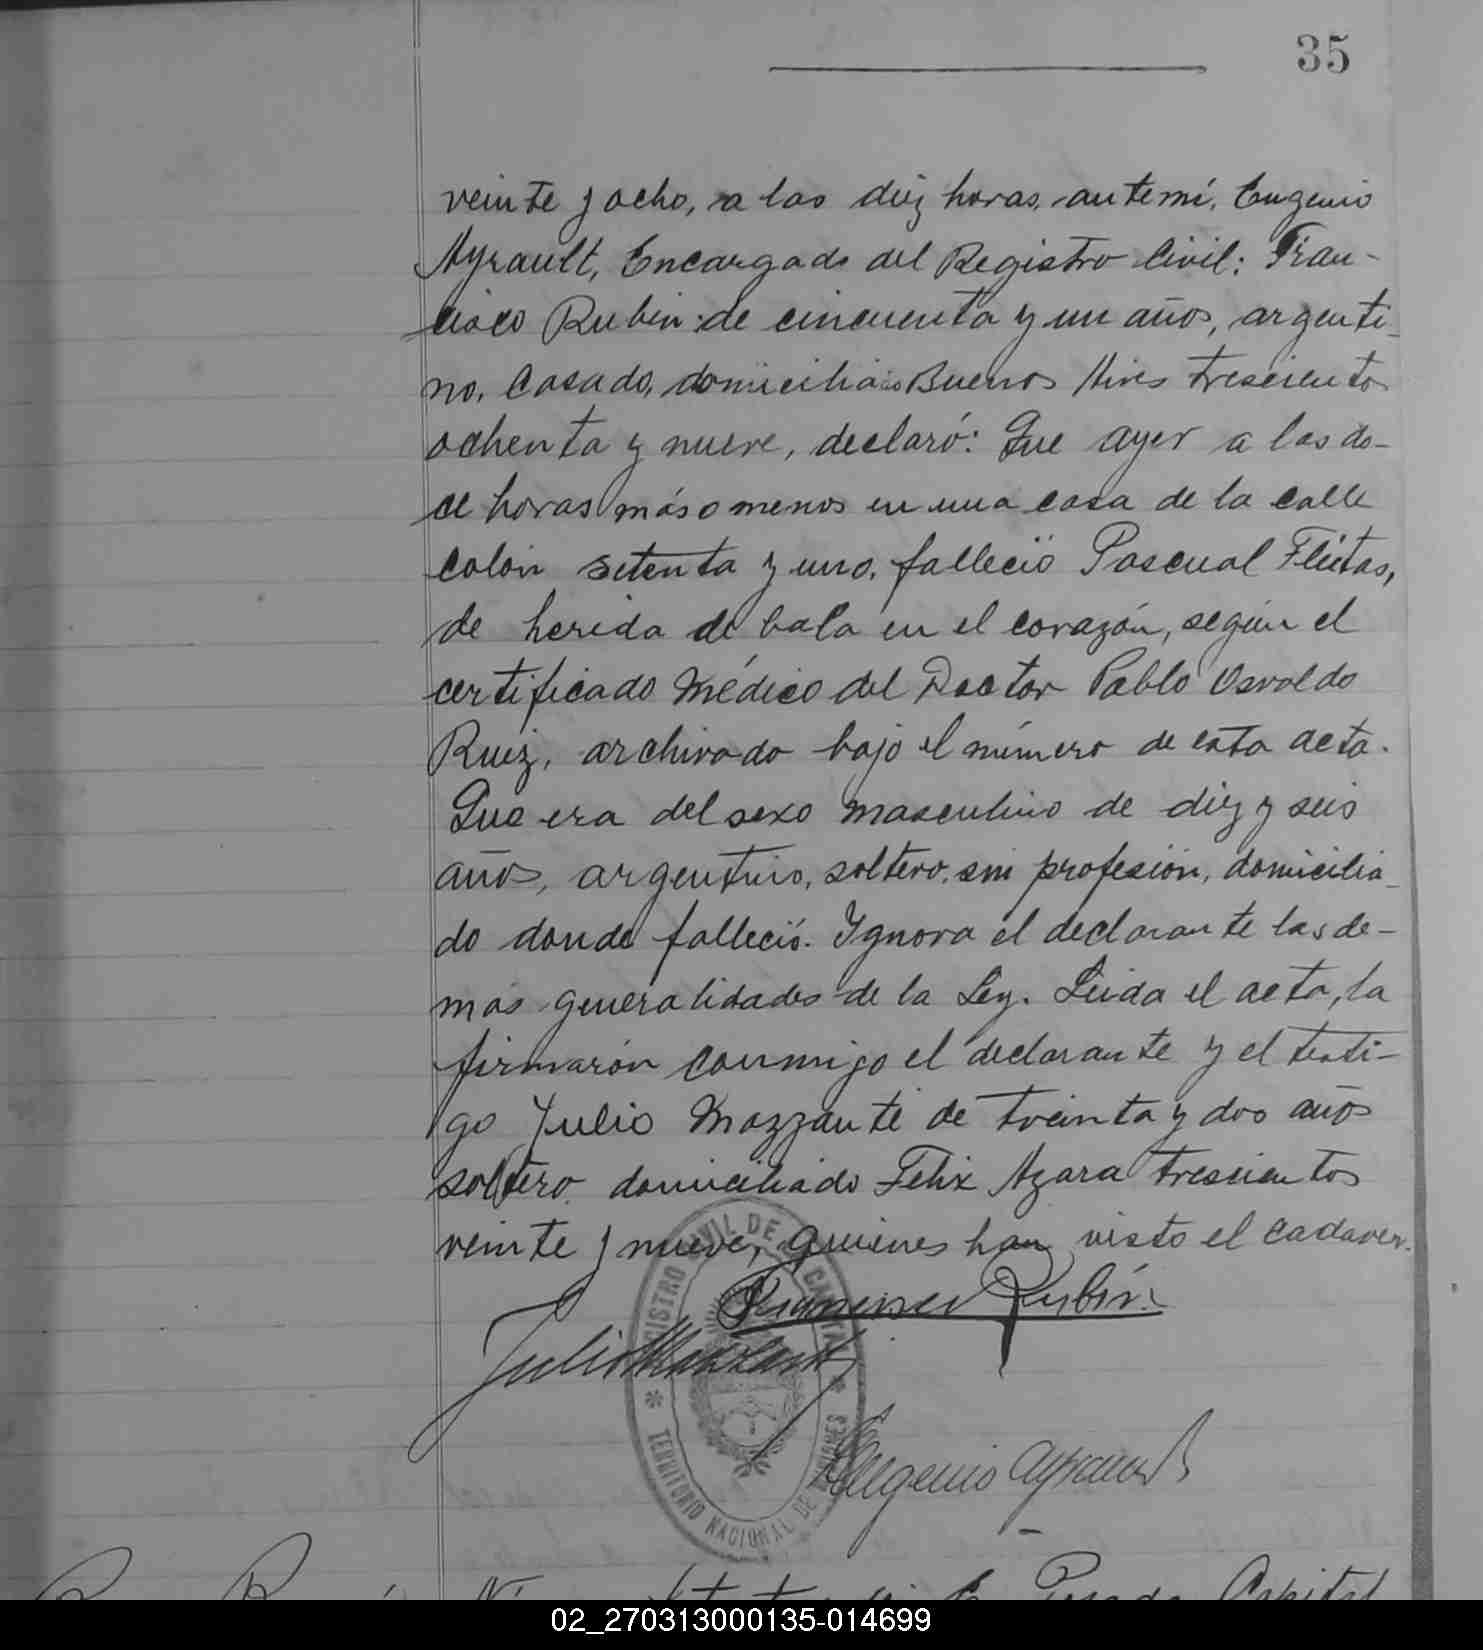 35
veinte y ocho, a las diez horas, ante mí, Eugenio
Ayrault, Encargado del Registro Civil: Fran-
cisco Rubin de cincuenta y un años, argenti-
no, casado, domiciliado Buenos Aires trescientos
ochenta y nueve, declaró: Que ayer a las do-
ce horas más o menos en una casa de la calle
Colón setenta y uno, falleció Pascual Fleitas,
de herida de bala en el corazón, según el
certificado Médico del Doctor Pablo Osvaldo
Ruiz, archivado bajo el número de esta acta.
Que era del sexo masculino de diez y seis
años, argentino, soltero, sin profesión, domicilia-
do donde falleció. Ignora el declarante las de-
mas generalidades de la Ley. Leida el acta, la
firmarón conmigo el declarante y el testi-
go Julio Mazzanti de treinta y dos años
soltero domiciliado Felix Azara trescientos
veinte y nueve, quienes han visto el cadaver.
Francisco Rubín
Julio Mazzanti
REGISTRO CIVIL DE LA CAPITAL
TERRITORIO NACIONAL DE MISIONES
Eugenio Ayrault
Posadas Capital
02_270313000135-014699